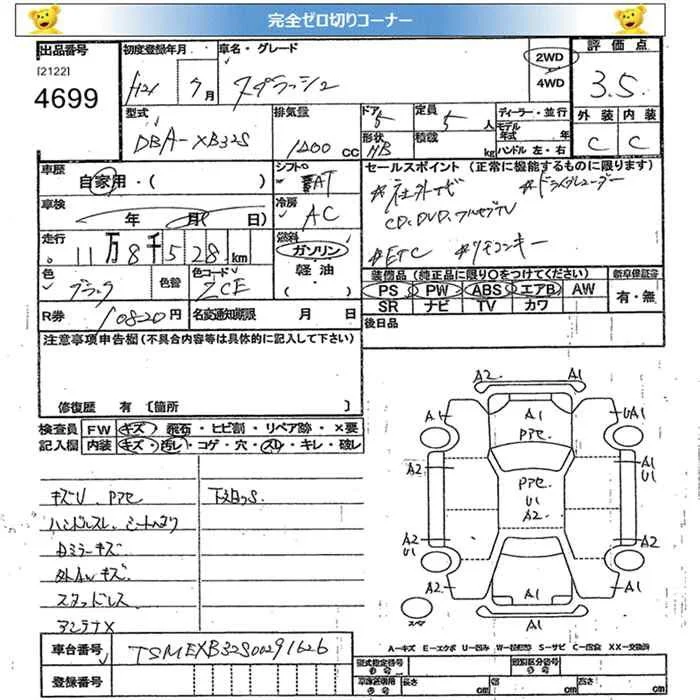 完全ゼロ切りコーナー
出品番号 初度登録年月 車名・グレード 2WD 評価点
[2122] 4WD
4699 H21 7月 スプラッシュ 3.5
型式 排気量 ドア 定員 ディーラー・並行 外装 内装
DBA-XB32S 1200cc 5 5人 モデル年式 年 C C
形状 HB 積載 kg ハンドル 左・右
車歴 自家用・( ) シフト AT セールスポイント (正常に機能するものに限ります)
車検 年 月( 日) 冷房 AC #社外ナビ #ドライブレコーダー
CD,DVD,フルセグTV
走行 11万8千528km 燃料 ガソリン #ETC #リモコンキー
軽油
・( )
色 ブラック 色替 色コード ZCE 装備品 (純正品に限り○をつけてください) 新車保証書
PS PW ABS エアB AW 有・無
SR ナビ TV カワ
R券 10820円 名変通知期限 月 日 後日品
注意事項申告欄 (不具合内容等は具体的に記入して下さい)
修復歴 有 〔箇所 〕
検査員 FW キズ・飛石・ヒビ割・リペア跡・×要
記入欄 内装 キズ・汚レ・コゲ・穴・スレ・キレ・破レ
キズU、Pアセ 下廻りS
ハンドルスレ、シートヘタリ
Dミラーキズ
外AWキズ
スタッドレス
アンテナX
A2 A1
A1 A1 UA1
Pアセ
A2 A1
U1
Pアセ
U1
A2
A2 A2
U1
A2 A1 A2
A1
スペア
A-キズ E-エクボ U-凹み W-補修跡 S-サビ C-腐食 XX-交換済
車台番号 TSMEXB32S00291626 型式指定番号 類別区分番号
登録番号 長さ cm 幅 cm 高さ cm